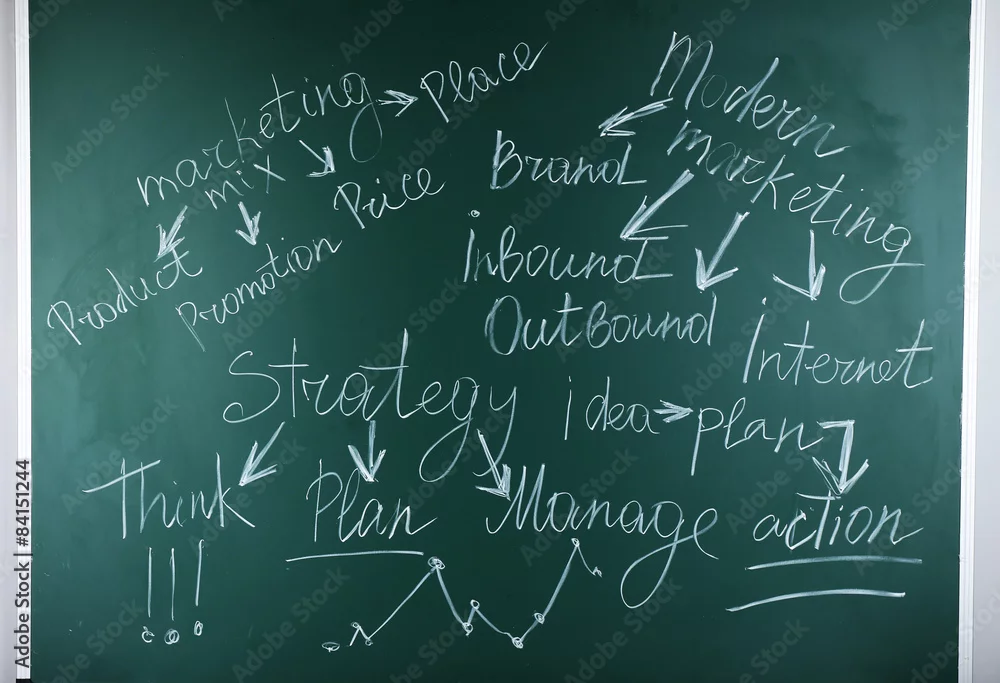 marketing mix → Place
Price
Product
Promotion
Modern
marketing
Brand
Inbound
Outbound
Internet
Strategy
idea → plan
Think
Plan
Manage
action
!!!
Adobe Stock | #84151244